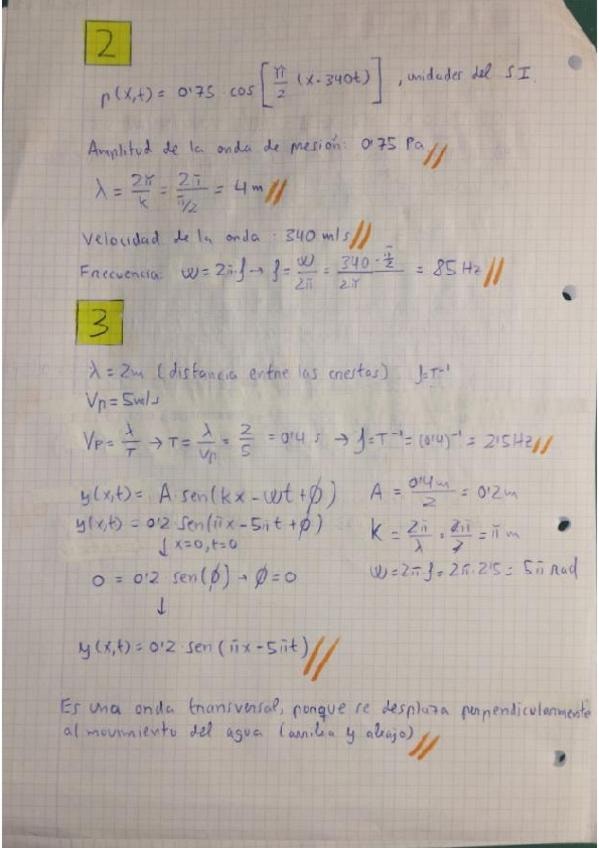 2
p(x,t) = 0'75 · cos [ π/2 (x - 340t) ] , unidades del S I.
Amplitud de la onda de presión: 0'75 Pa //
λ = 2π/k = 2π/(π/2) = 4 m //
Velocidad de la onda : 340 m/s //
Frecuencia: ω = 2π·f → f = ω/2π = (340 · π/2)/2π = 85 Hz //
3
λ = 2m (distancia entre las crestas) f=T⁻¹
Vp = 5m/s
Vp = λ/T → T = λ/Vp = 2/5 = 0'4 s → f = T⁻¹ = (0'4)⁻¹ = 2'5 Hz //
y(x,t) = A · sen(kx - ωt + ø) A = 0'4m/2 = 0'2m
y(x,t) = 0'2 · sen(πx - 5πt + ø) K = 2π/λ = 2π/2 = π m
↓ x=0, t=0
0 = 0'2 sen(ø) → ø = 0 ω = 2πf = 2π·2'5 = 5π rad
↓
y(x,t) = 0'2 sen(πx - 5πt) //
Es una onda transversal, porque se desplaza perpendicularmente
al movimiento del agua (arriba y abajo) //